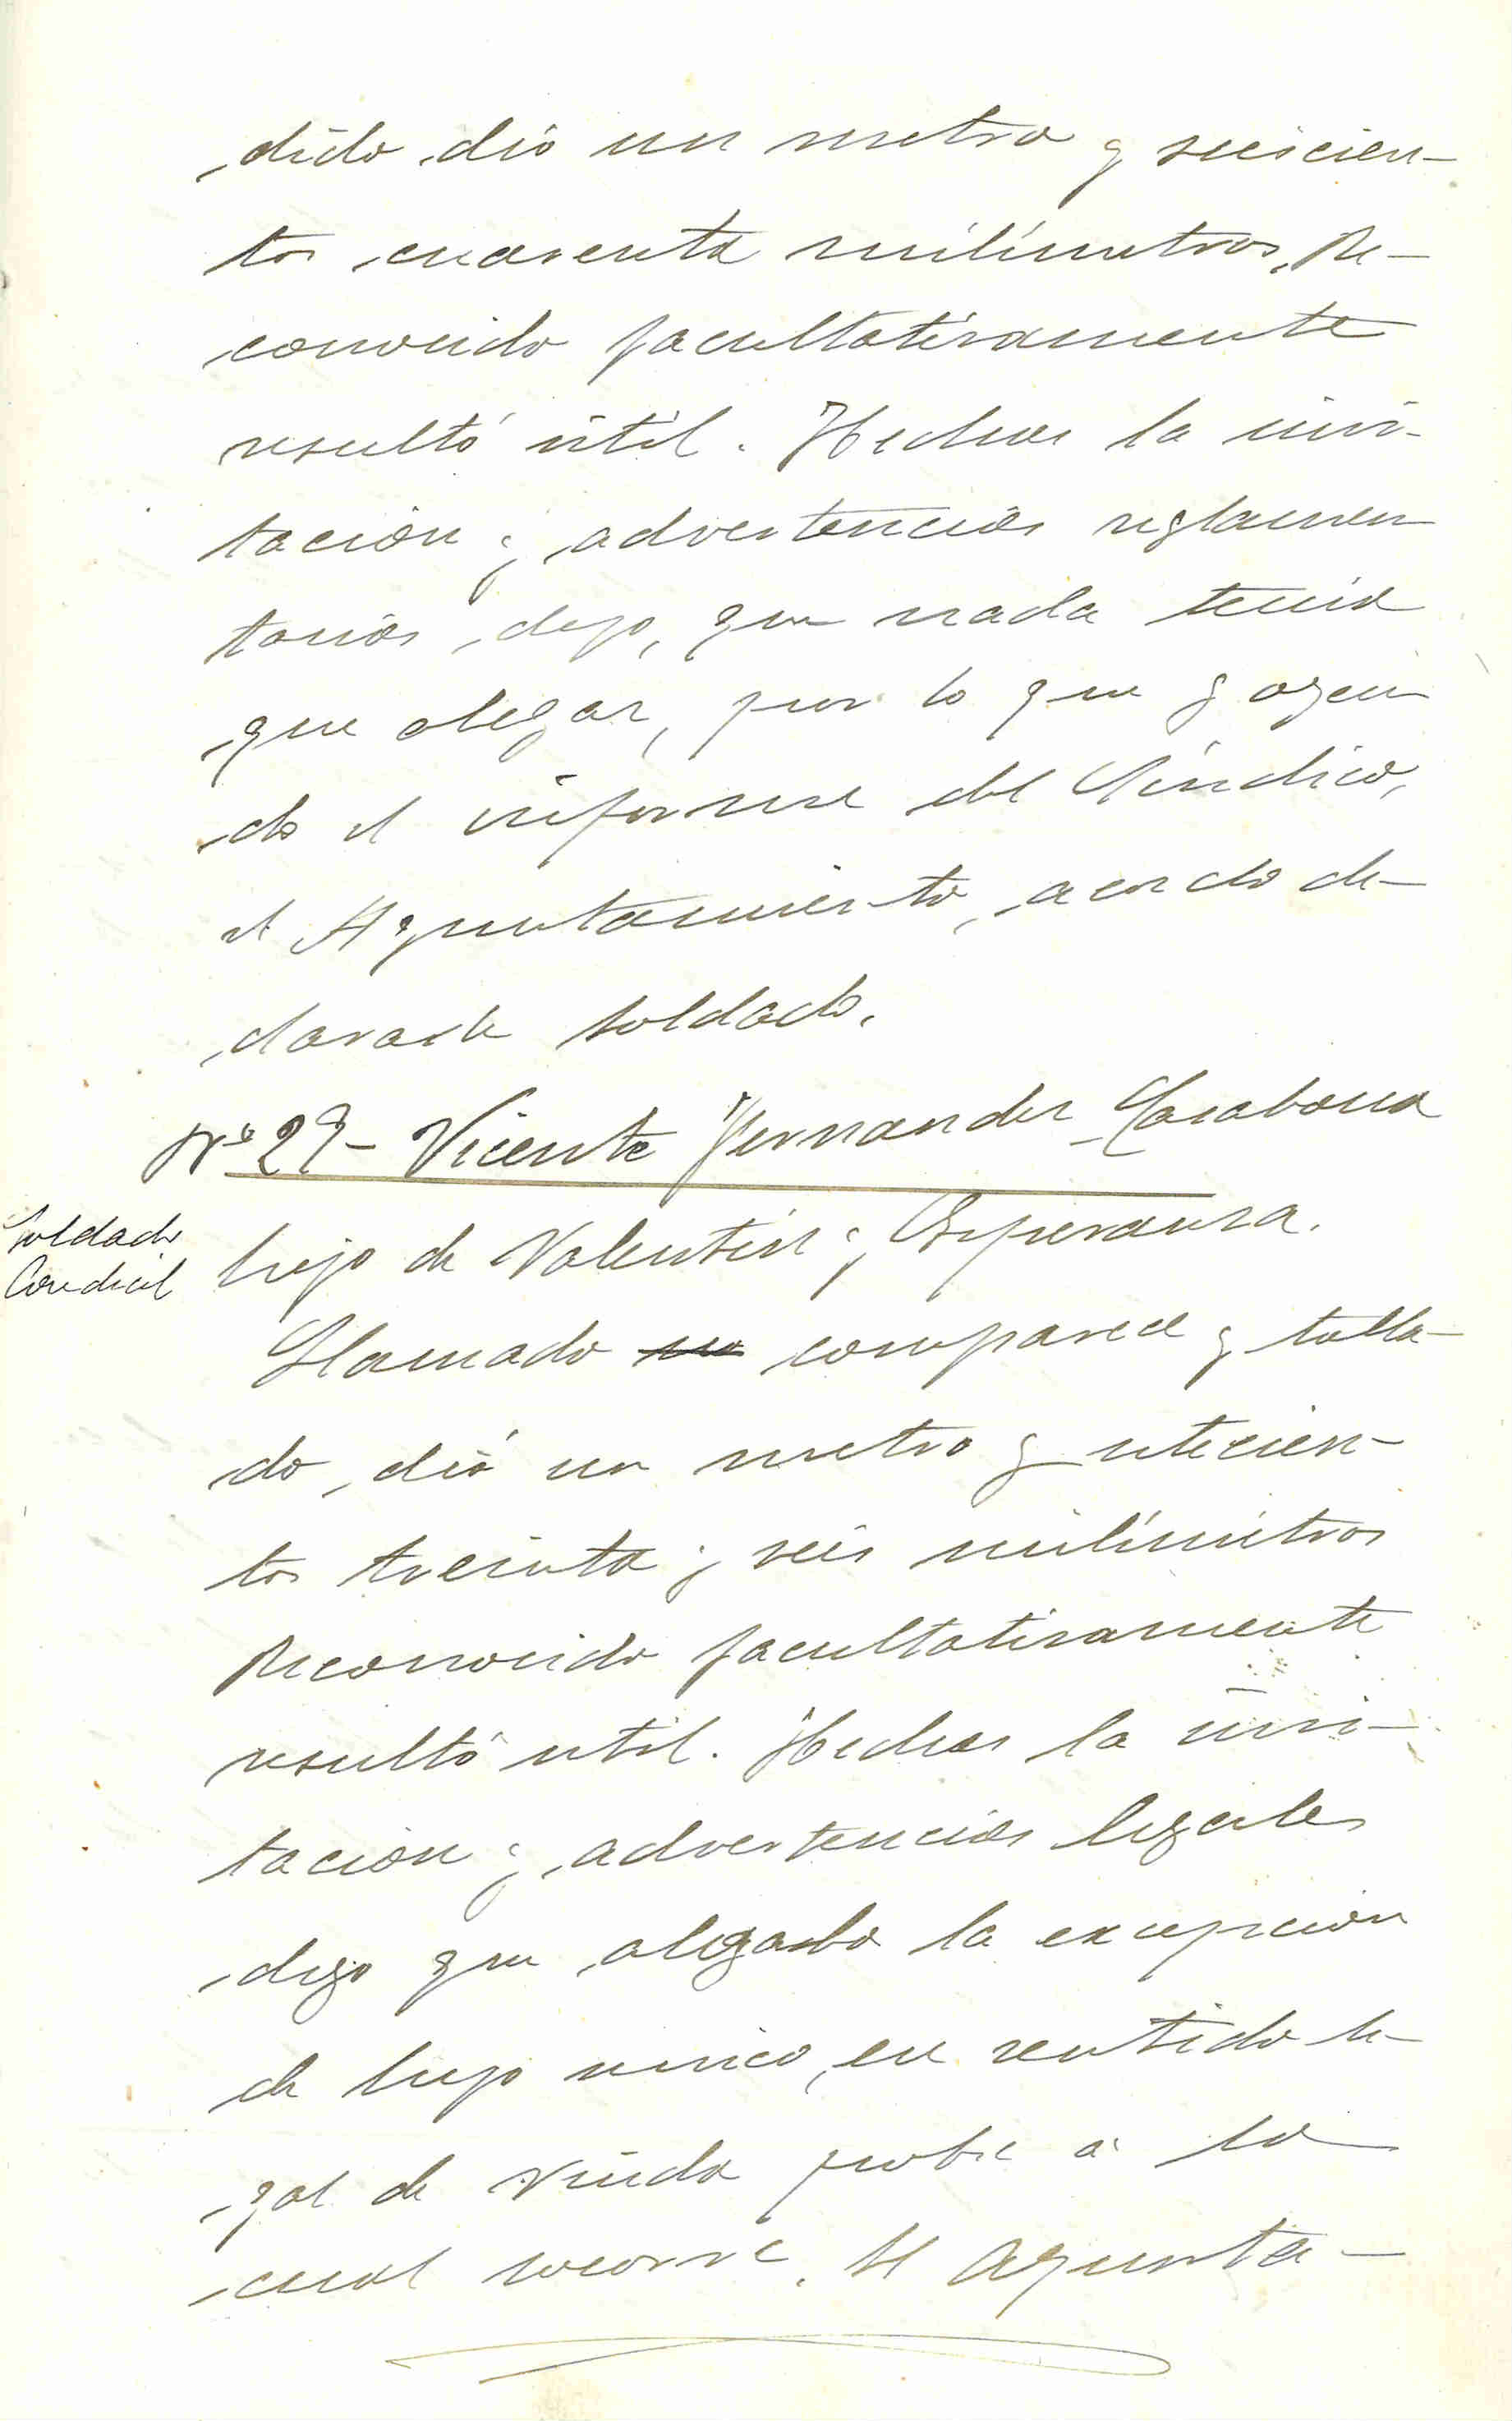 dido dió un metro y seiscien-
tos cuarenta milímetros. Re-
conocido facultativamente
resultó útil. Hechas la invi-
tación y advertencias reglamen
tarias, dijo, que nada tenía
que alegar, por lo que y oyen
do el informe del Síndico,
el Ayuntamiento, acordó de-
clararle soldado.
Nº 29- Vicente Fernandez Carabona
Soldado
Condicil
hijo de Valentín y Esperanza.
Llamado no comparece y talla-
do, dió un metro y setecien-
tos treinta y seis milímetros
Reconocido facultativamente
resultó util. Hechas la invi-
tación y advertencias legales
dijo que alegaba la excepción
de hijo unico, en sentido le-
gal de viuda pobre á la
cual socorre. El Ayunta-